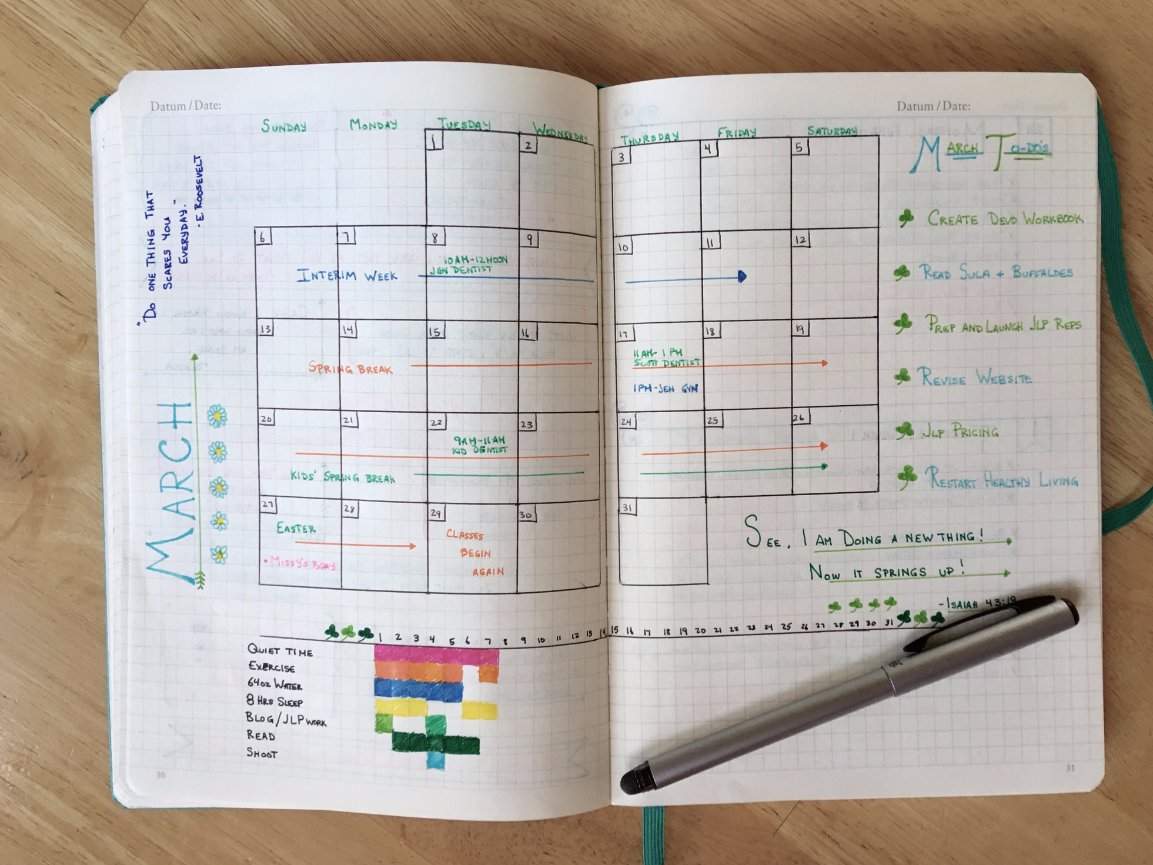 Datum / Date:
Datum / Date:
"Do one thing that
scares you
everyday."
- E. Roosevelt
March
Sunday Monday Tuesday Wednesday Thursday Friday Saturday
1 2 3 4 5
6 7 8 9 10 11 12
Interim Week
10AM-12NOON
Jen Dentist
13 14 15 16 17 18 19
Spring Break
11AM-1PM
Scott Dentist
1PM-Jen Gyn
20 21 22 23 24 25 26
9AM-11AM
Kid Dentist
Kids' Spring Break
27 28 29 30 31
Easter
• Missy's Bday
Classes
Begin
Again
March To-do's
Create Devo Workbook
Read Sula + Buffaloes
Prep and Launch JLP Reps
Revise Website
JLP Pricing
Restart Healthy Living
See, I am doing a new thing!
Now it springs up!
- Isaiah 43:19
1 2 3 4 5 6 7 8 9 10 11 12 13 14 15 16 17 18 19 20 21 22 23 24 25 26 27 28 29 30 31
Quiet Time
Exercise
64oz Water
8 Hrs Sleep
Blog/JLP work
Read
Shoot
30
31